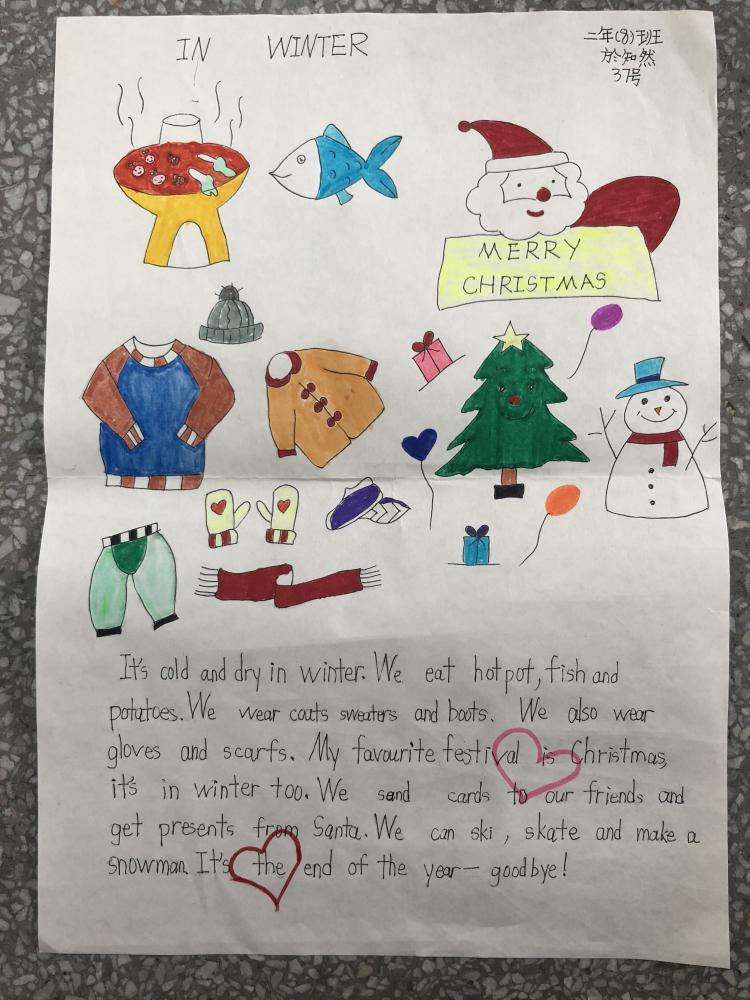 IN WINTER
二年(8)班
於知然
37号
MERRY
CHRISTMAS
It's cold and dry in winter. We eat hotpot, fish and
potatoes. We wear coats sweaters and boots. We also wear
gloves and scarfs. My favourite festival is Christmas,
it's in winter too. We send cards to our friends and
get presents from Santa. We can ski, skate and make a
snowman. It's the end of the year — goodbye!